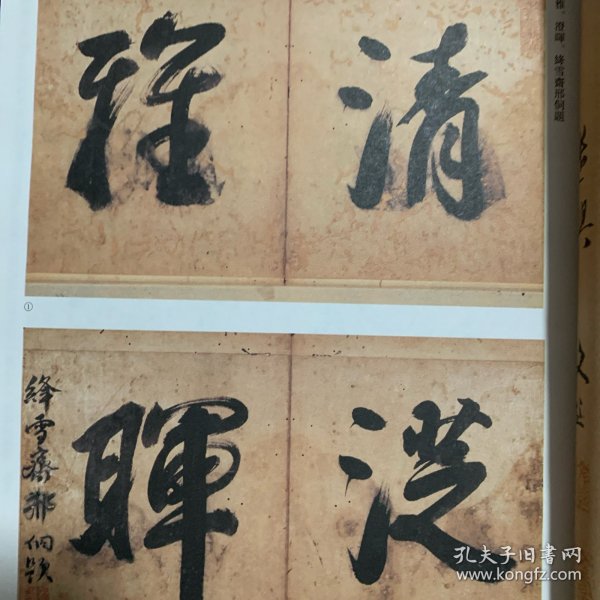 清雅
①
澄暉
絳雪齋邢侗題
雅、澄暉，絳雪齋邢侗題
孔夫子旧书网
www.kongfz.com